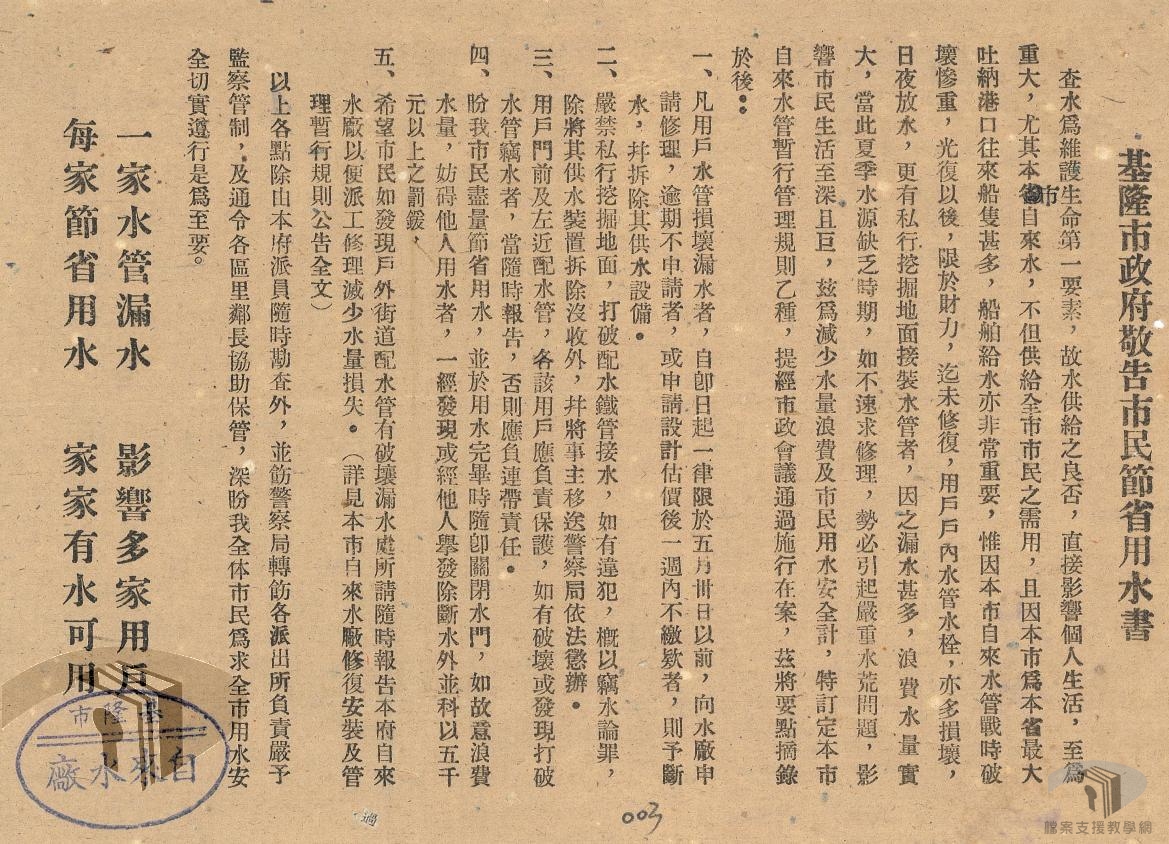 基隆市政府敬告市民節省用水書
查水爲維護生命第一要素，故水供給之良否，直接影響個人生活，至爲
重大，尤其本市自來水，不但供給全市市民之需用，且因本市爲本省最大
吐納港口往來船隻甚多，船舶給水亦非常重要，惟因本市自來水管戰時破
壞慘重，光復以後，限於財力，迄未修復，用戶戶內水管水栓，亦多損壞，
日夜放水，更有私行挖掘地面接裝水管者，因之漏水甚多，浪費水量實
大，當此夏季水源缺乏時期，如不速求修理，勢必引起嚴重水荒問題，影
響市民生活至深且巨，茲爲減少水量浪費及市民用水安全計，特訂定本市
自來水管暫行管理規則乙種，提經市政會議通過施行在案，茲將要點摘錄
於後：
一、凡用戶水管損壞漏水者，自卽日起一律限於五月卅日以前，向水廠申
請修理，逾期不申請者，或申請設計估價後一週內不繳欵者，則予斷
水，幷拆除其供水設備。
二、嚴禁私行挖掘地面，打破配水鐵管接水，如有違犯，槪以竊水論罪，
除將其供水裝置拆除沒收外，幷將事主移送警察局依法懲辦。
三、用戶門前及左近配水管，各該用戶應負責保護，如有破壞或發現打破
水管竊水者，當隨時報告，否則應負連帶責任。
四、盼我市民盡量節省用水，並於用水完畢時隨卽關閉水門，如故意浪費
水量，妨碍他人用水者，一經發現或經他人舉發除斷水外並科以五千
元以上之罰鍰，
五、希望市民如發現戶外街道配水管有破壞漏水處所請隨時報告本府自來
水廠以便派工修理減少水量損失。（詳見本市自來水廠修復安裝及管
理暫行規則公告全文）
以上各點除由本府派員隨時勘查外，並飭警察局轉飭各派出所負責嚴予
監察管制，及通令各區里鄰長協助保管，深盼我全体市民爲求全市用水安
全切實遵行是爲至要。
一家水管漏水　影響多家用戶
每家節省用水　家家有水可用
基隆市
自來水廠
003
檔案支援教學網